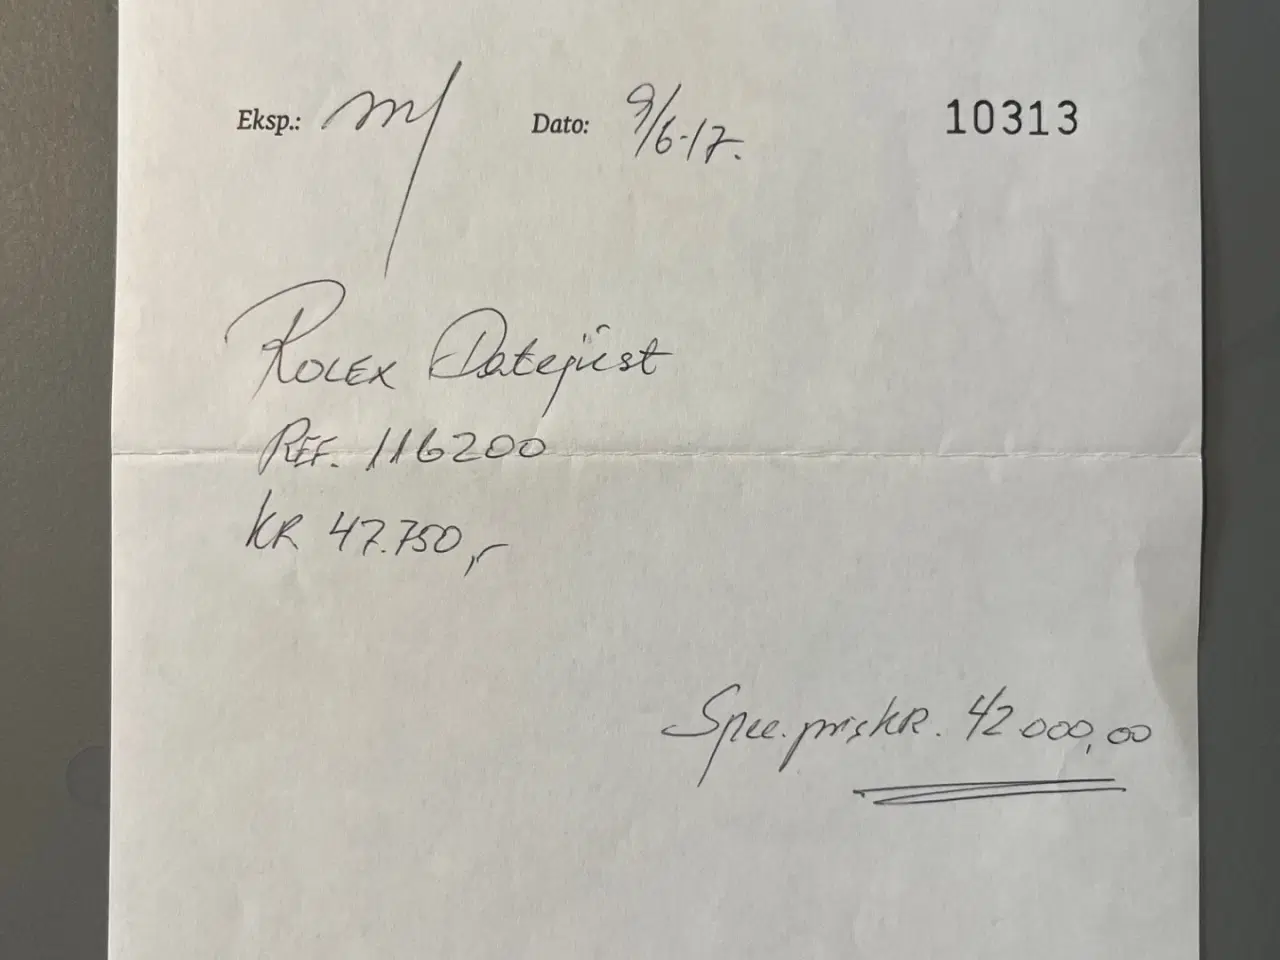 Eksp.: Dato: 9/6-17. 10313
ROLEX Datejust
REF. 116200
KR 47.750,-
Spec. pris KR. 42 000,00